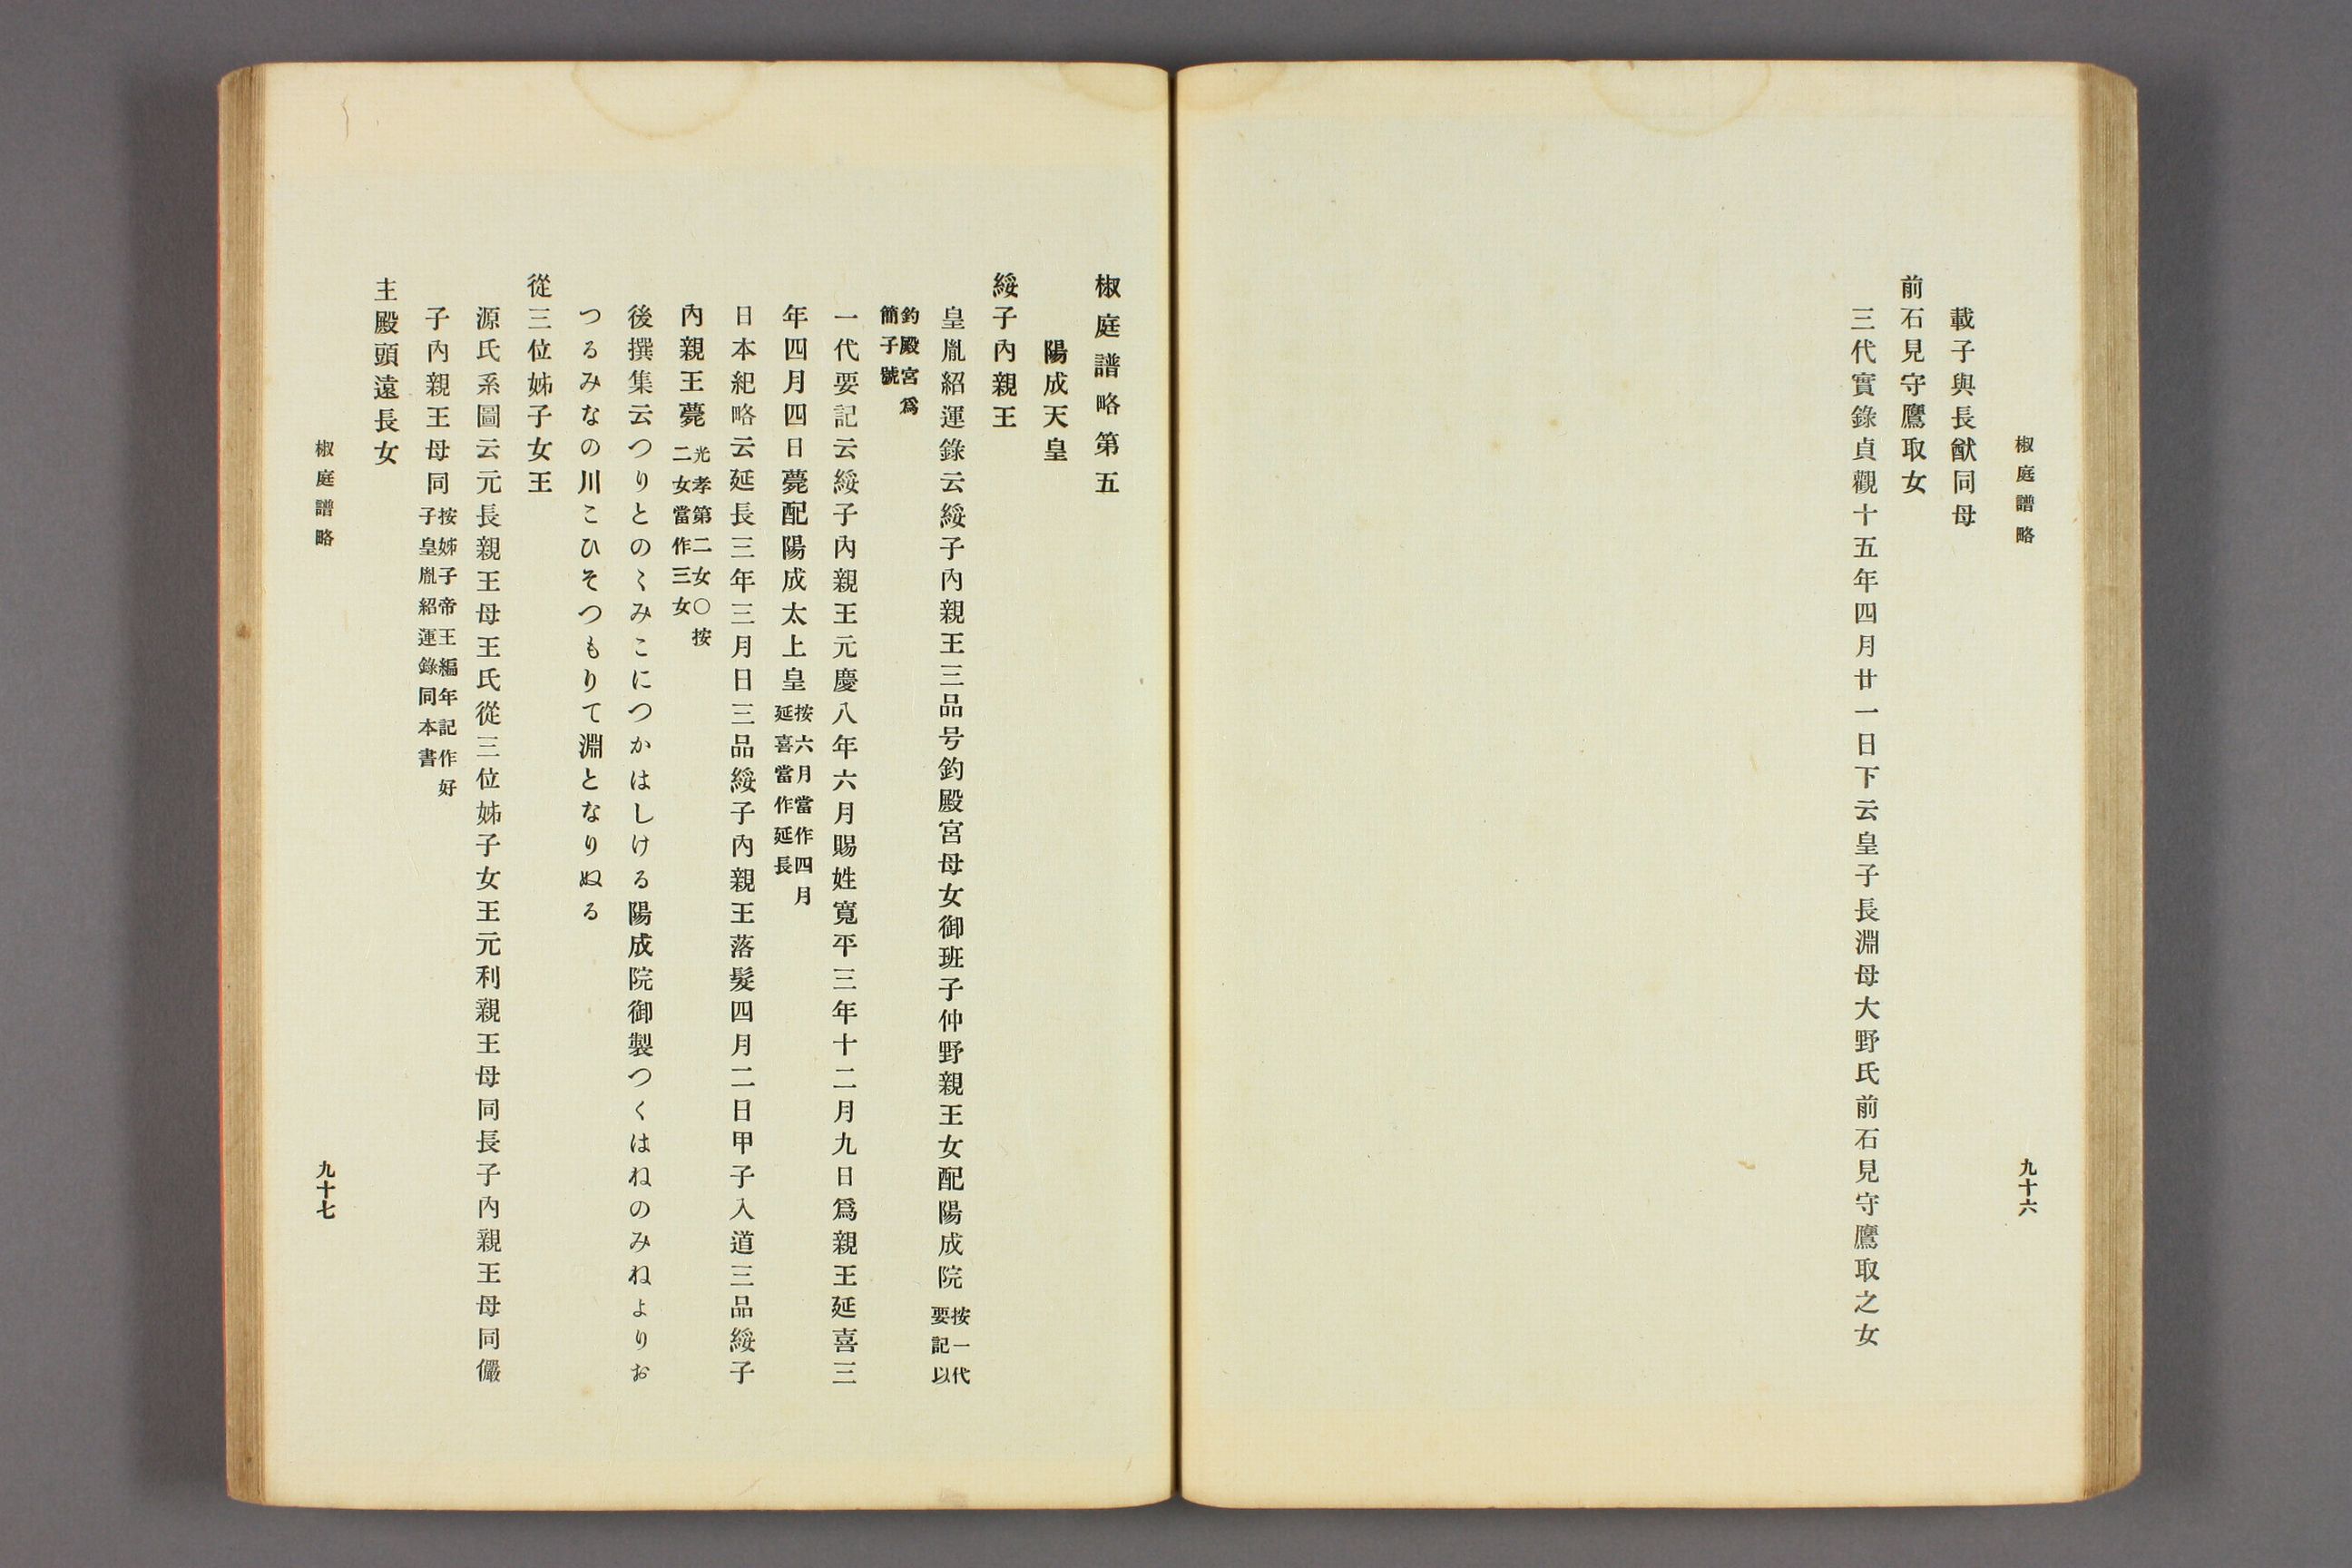 椒庭譜略
九十六
載子與長猷同母
前石見守鷹取女
三代實錄貞觀十五年四月廿一日下云皇子長淵母大野氏前石見守鷹取之女
椒庭譜略第五
陽成天皇
綏子內親王
皇胤紹運錄云綏子內親王三品号釣殿宮母女御班子仲野親王女配陽成院
按一代
要記以
釣殿宮爲
簡子號
一代要記云綏子內親王元慶八年六月賜姓寬平三年十二月九日爲親王延喜三
年四月四日薨配陽成太上皇
按六月當作四月
延喜當作延長
日本紀略云延長三年三月日三品綏子內親王落髮四月二日甲子入道三品綏子
內親王薨
光孝第二女○按
二女當作三女
後撰集云つりとのゝみこにつかはしける陽成院御製つくはねのみねよりお
つるみなの川こひそつもりて淵となりぬる
從三位姊子女王
源氏系圖云元長親王母王氏從三位姊子女王元利親王母同長子內親王母同儼
子內親王母同
按姊子帝王編年記作好
子皇胤紹運錄同本書
主殿頭遠長女
椒庭譜略
九十七